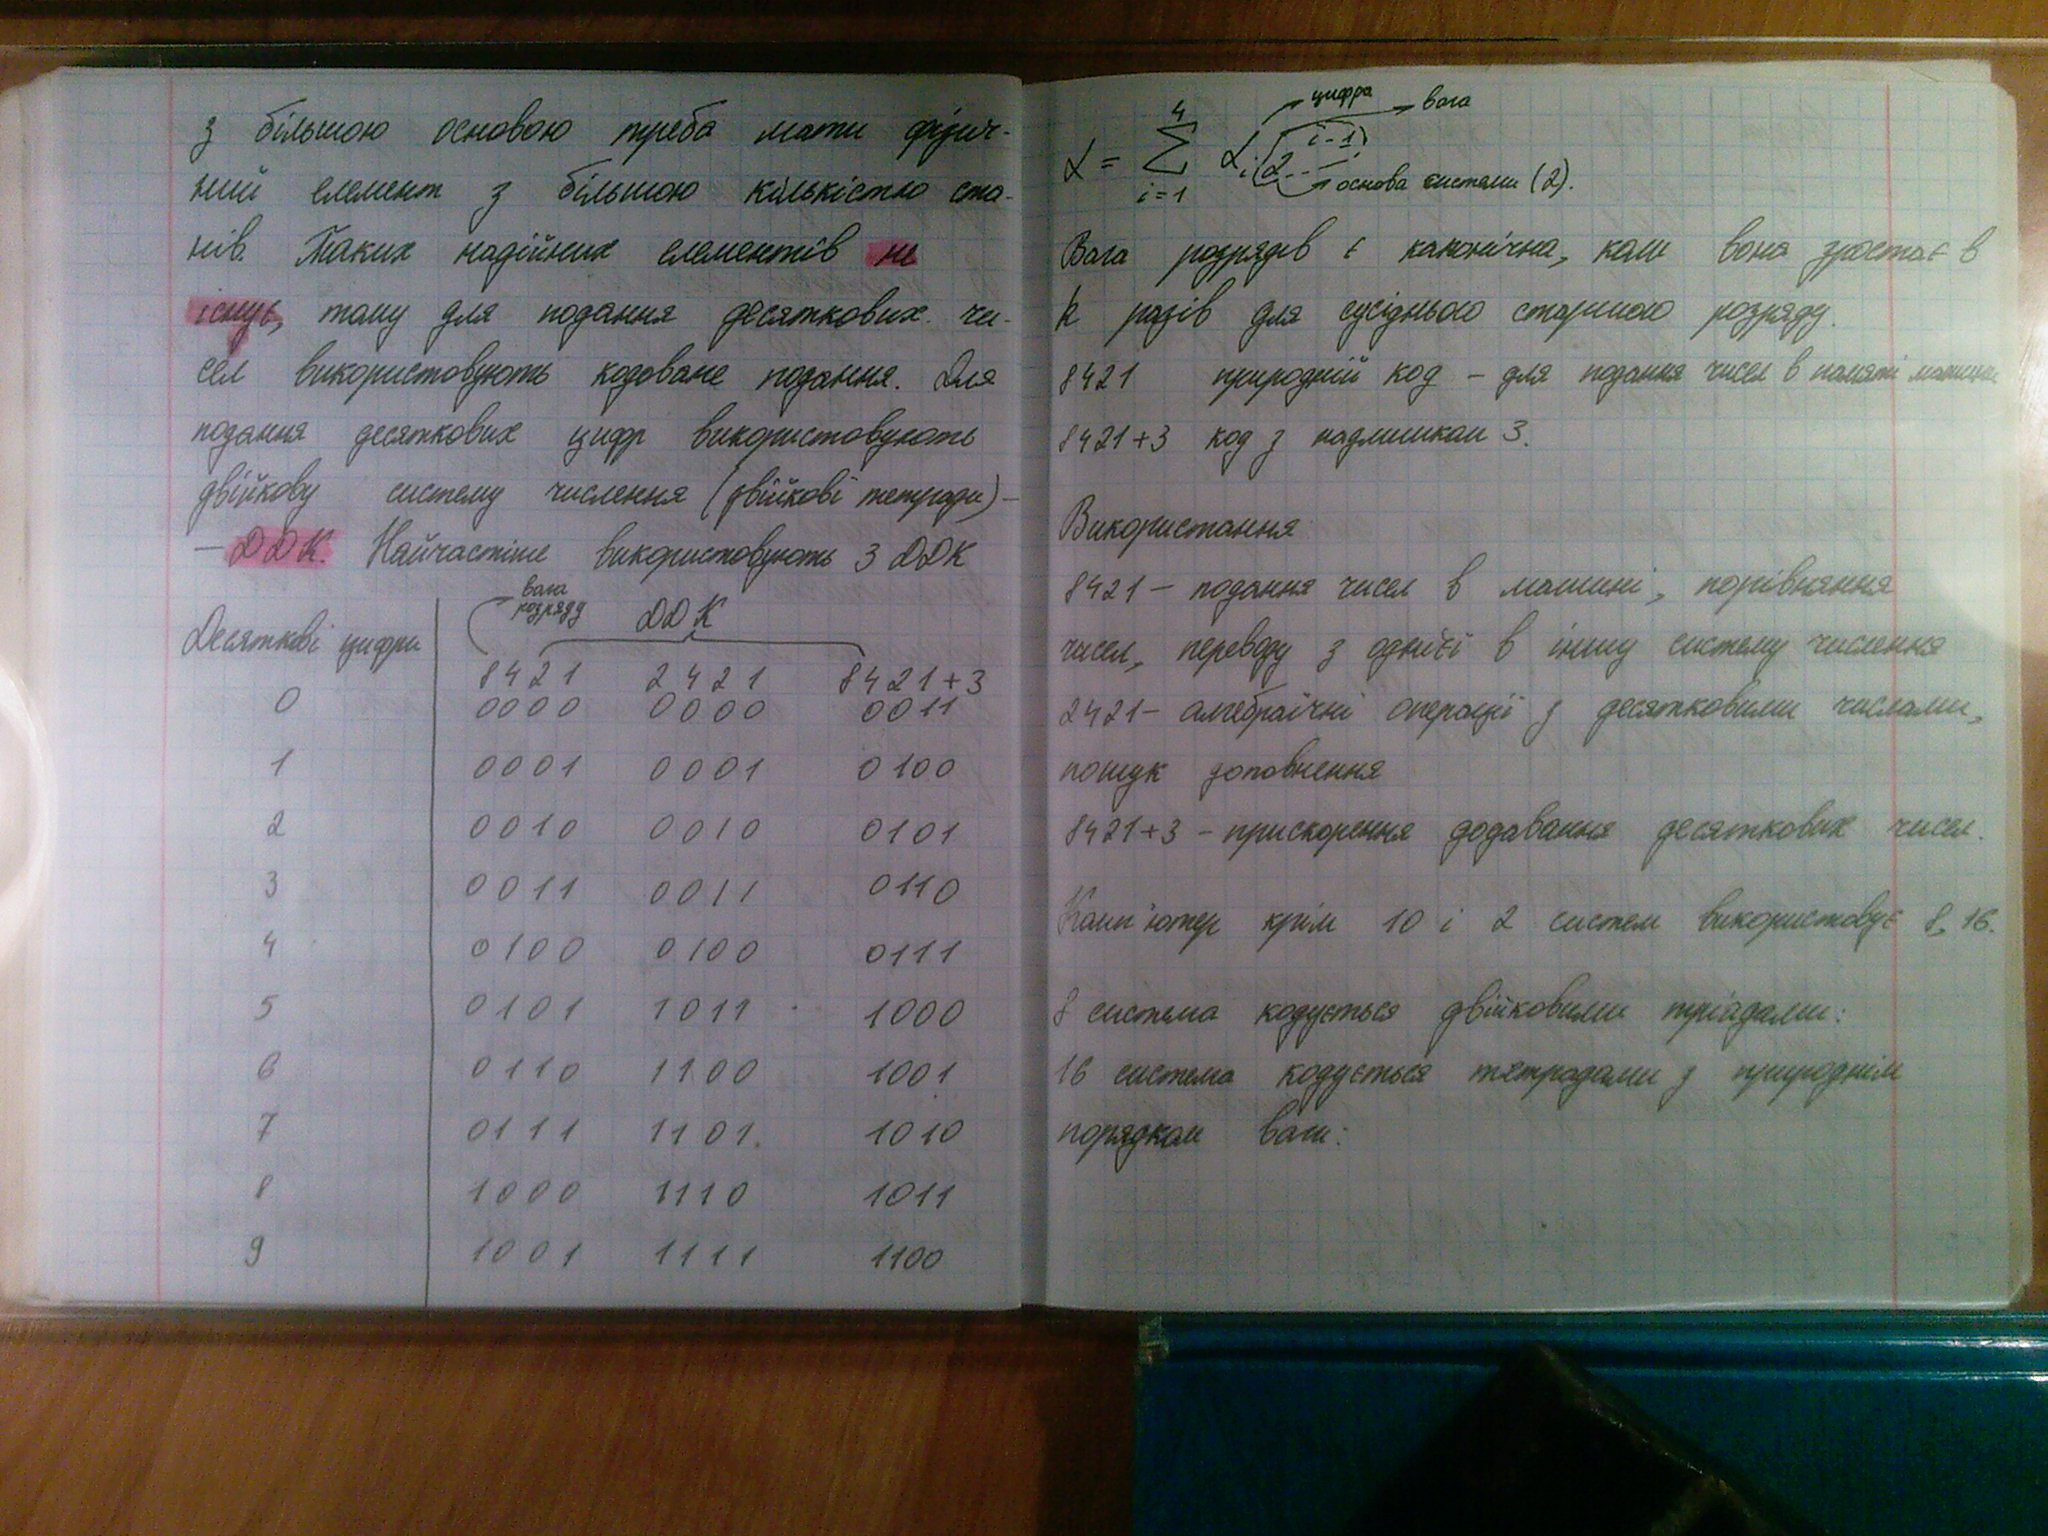 з більшою основою треба мати фізич-
ний елемент з більшою кількістю ста-
нів. Таких надійних елементів не
існує, тому для подання десяткових чи-
сел використовують кодоване подання. Для
подання десяткових цифр використовують
двійкову систему числення (двійкові тетради) –
– ДДК. Найчастіше використовують 3 ДДК
Десяткові цифри
вага
розряду
ДДК
8421 2421 8421+3
0 0000 0000 0011
1 0001 0001 0100
2 0010 0010 0101
3 0011 0011 0110
4 0100 0100 0111
5 0101 1011 1000
6 0110 1100 1001
7 0111 1101 1010
8 1000 1110 1011
9 1001 1111 1100
цифра вага
α = Σ αᵢ(2 (i-1)
4
i=1
основа системи (2).
Вага розрядів є канонічна, коли вона зростає в
k разів для сусіднього старшого розряду.
8421 природній код – для подання чисел в памяті машини
8421+3 код з надлишком 3.
Використання
8421 – подання чисел в машині, порівняння
чисел, переводу з однієї в іншу систему числення
2421 – алгебраїчні операції з десятковими числами,
пошук доповнення
8421+3 – прискорення додавання десяткових чисел.
Комп'ютер крім 10 і 2 систем використовує 8, 16.
8 система кодується двійковими тріадами:
16 система кодується тетрадами з природнім
порядком ваги: